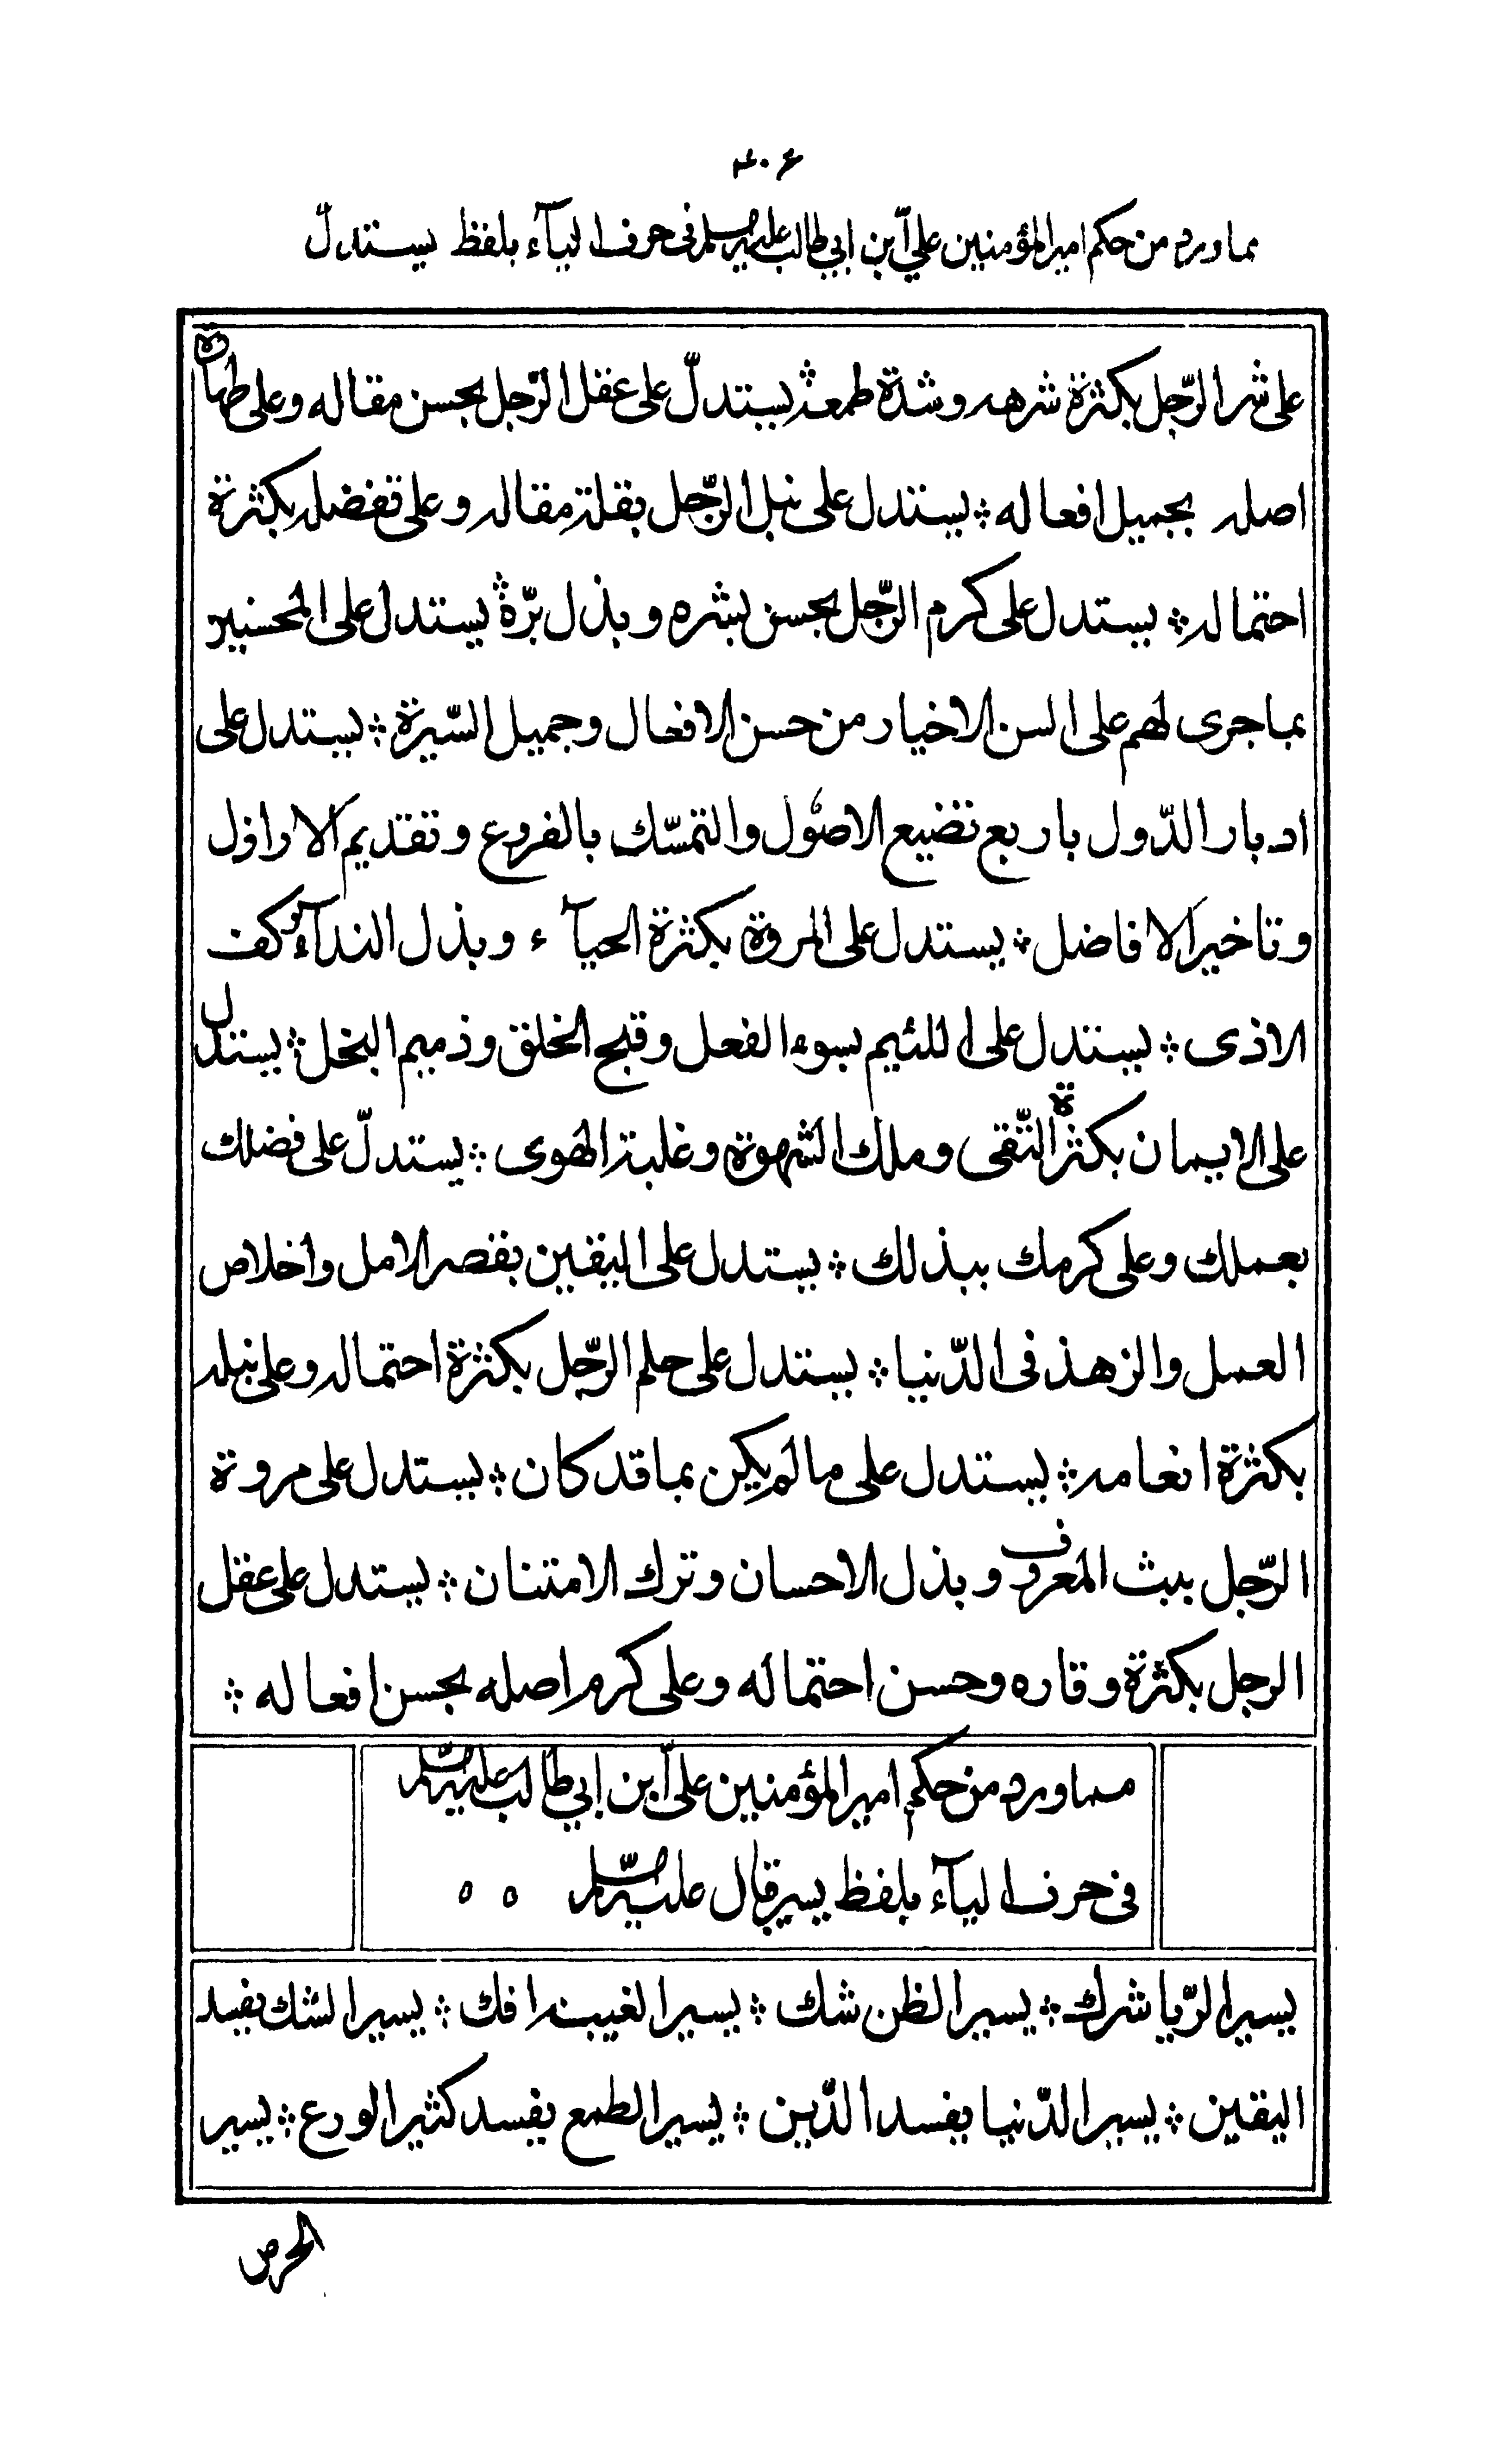 ۴۰۶
مما ورد من حكم امير المؤمنين علي ابن ابي طالب عليه السلم فى حرف اليآء بلفظ يستدلّ
على شر الرّجل بكثرة شرهه وشدة طمعه ؞ يستدلّ على عقل الرّجل بحسن مقاله وعلى طهارة
اصله بجميل افعاله ؞ يستدل على نبل الرّجل بقلة مقاله وعلى تفضله بكثرة
احتماله ؞ يستدل على كرم الرّجل بحسن بشره وبذل برّه ؞ يستدل على المحسنين
بما جرى لهم على السن الاخيار من حسن الافعال وجميل السّيرة ؞ يستدل على
ادبار الدّول باربع تضييع الاصول والتمسّك بالفروع وتقديم الاراذل
وتاخير الافاضل ؞ يستدل على المروة بكثرة الحيآء وبذل الندآء وكف
الاذى ؞ يستدل على اللئيم بسوء الفعل وقبح الخلق وذميم البخل ؞ يستدل
على الايمان بكثرة التّقى وملك الشهوة وغلبة الهوى ؞ يستدلّ على فضلك
بعملك وعلى كرمك ببذلك ؞ يستدل على اليقين بقصر الامل واخلاص
العمل والزهد فى الدّنيا ؞ يستدل على حلم الرّجل بكثرة احتماله وعلى نبله
بكثرة انعامه ؞ يستدل على ما لم يكن بما قد كان ؞ يستدل على مروة
الرّجل ببث المعروف وبذل الاحسان وترك الامتنان ؞ يستدل على عقل
الرجل بكثرة وقاره وحسن احتماله وعلى كرم اصله بحسن افعاله ؞
مما ورد من حكم امير المؤمنين على ابن ابي طالب عليه السّلم
فى حرف اليآء بلفظ يسير قال عليه السّلم
يسير الرّيا شرك ؞ يسير الظن شك ؞ يسير الغيبة افك ؞ يسير الشك يفسد
اليقين ؞ يسير الدّنيا يفسد الدّين ؞ يسير الطمع يفسد كثير الورع ؞ يسير
الحرص